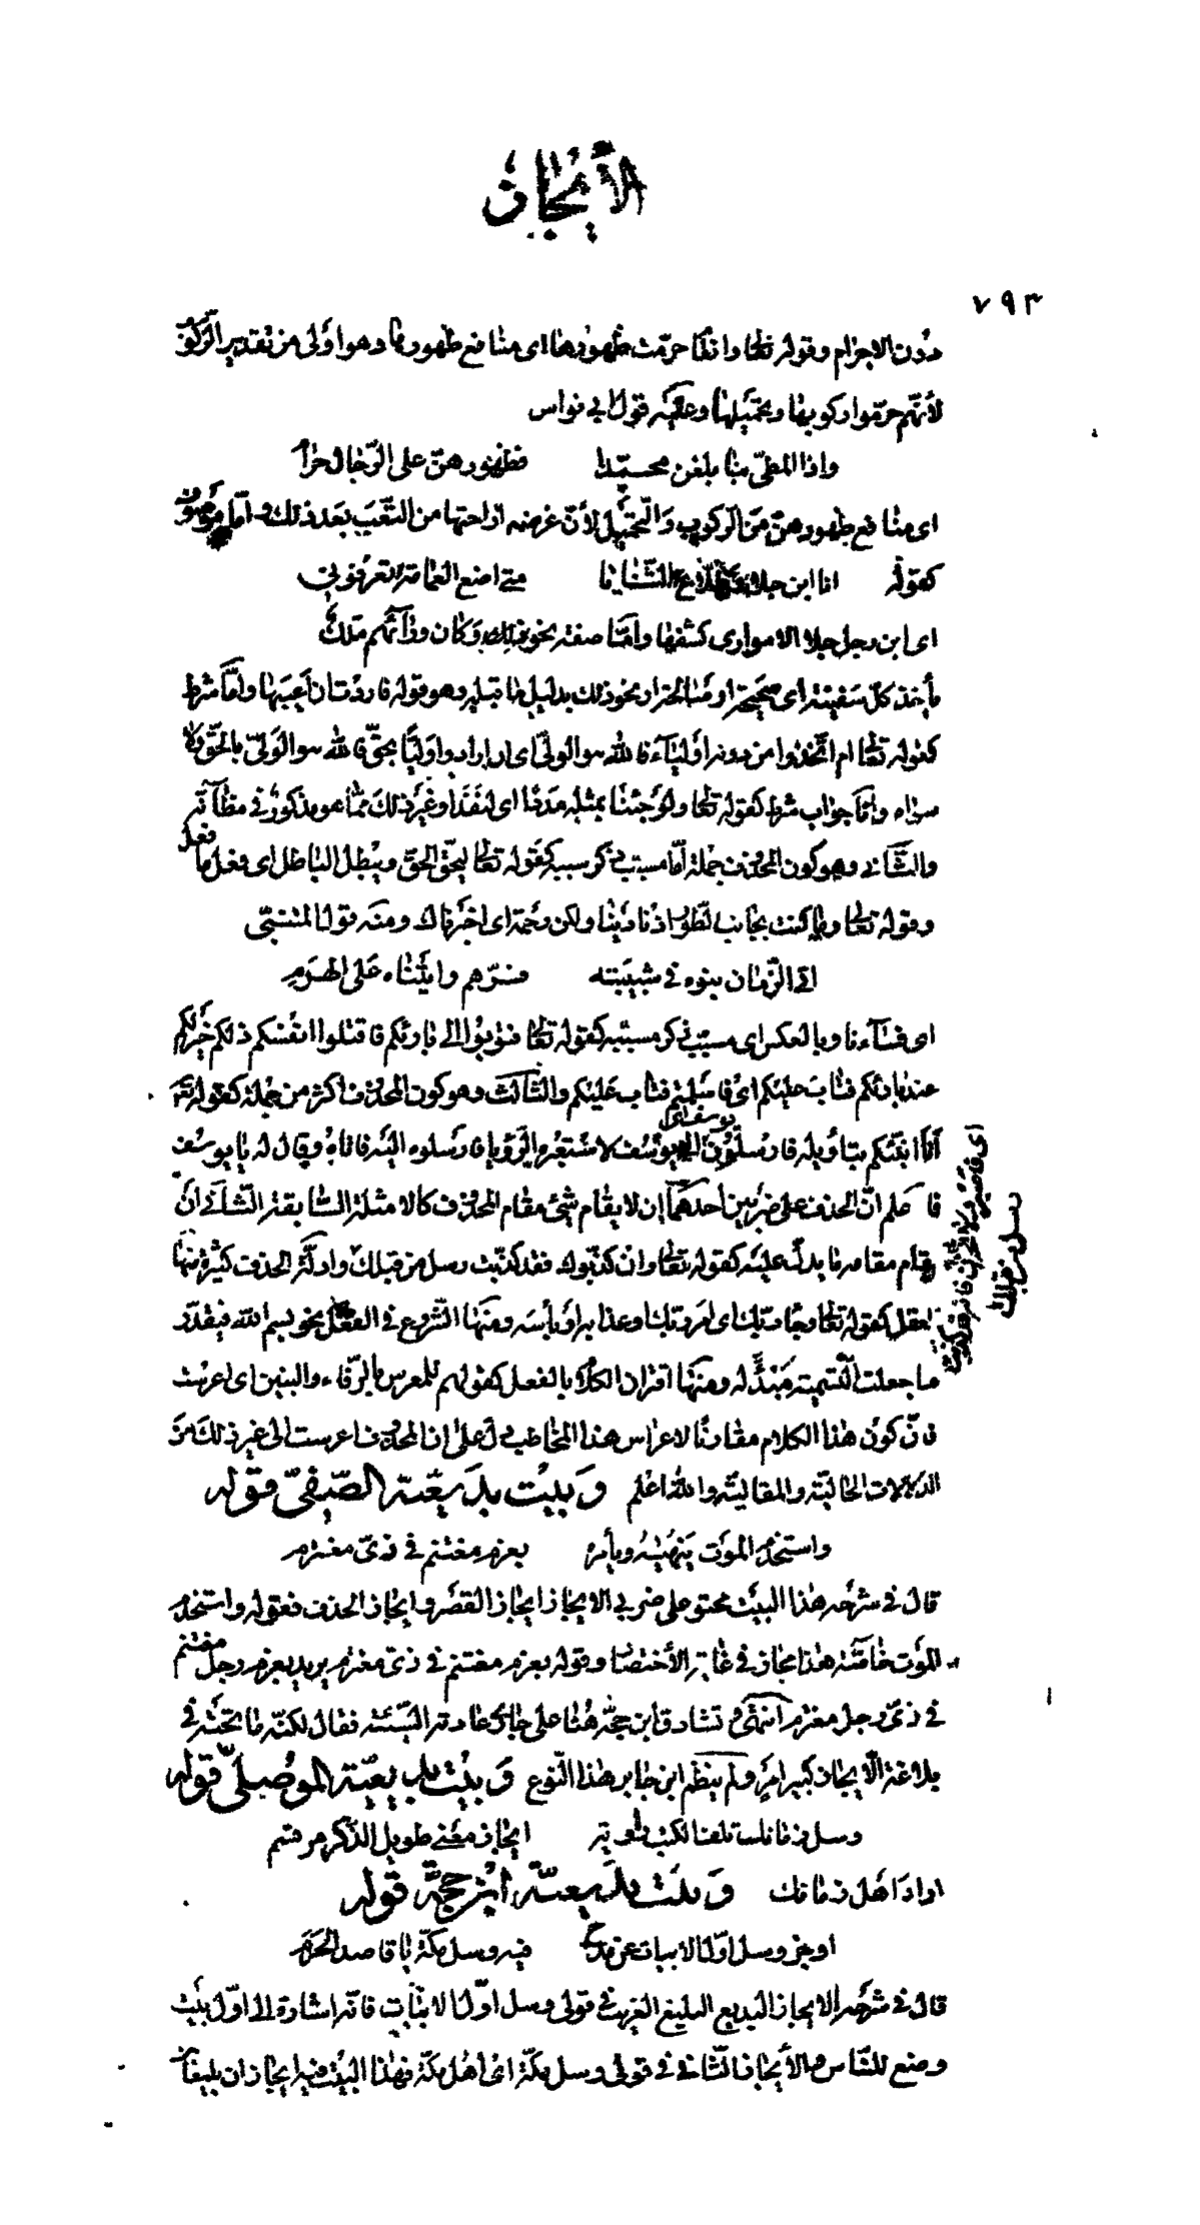 الإيجاز
٧٩٣
دون الاجرام وقوله تعالى وانعام حرمت ظهورها اى منافع ظهورها وهو اولى من تقدير الركوب
لأنهم حرموا ركوبها وتحميلها وعليه قول ابي نواس
واذا المطي بنا بلغن محمدا فظهورهن على الرجال حرام
اى منافع ظهورهن من الركوب والتحميل لأن غرضه اراحتها من التعب بعد ذلك واما موصوف
كقوله انا ابن جلا وطلاع الثنايا متى اضع العمامة تعرفوني
اى ابن رجل جلا الامور اى كشفها واما صفة نحو قوله وكان وراءهم ملك
يأخذ كل سفينة اى صحيحة او سالمة او نحو ذلك بدليل ما قبله وهو قوله فاردت ان اعيبها واما شرط
كقوله تعالى ام اتخذوا من دونه اولياء فالله هو الولي اى ان ارادوا وليا بحق فالله هو الولي بالحق ولا
سواه واما جواب شرط كقوله تعالى ولو جئنا بمثله مددا اى لنفد او غير ذلك مما هو مذكور في مظانه
والثاني وهو كون المحذوف جملة اما مسبب ذكر سببه كقوله تعالى ليحق الحق ويبطل الباطل اى فعل ما فعل
وقوله تعالى وما كنت بجانب الطور اذ نادينا ولكن رحمة اى اخترناك ومنه قول المتنبي
اتى الزمان بنوه في شبيبته فسرهم واتيناه على الهرم
اى فساءنا وبالعكس اى سبب ذكر مسببه كقوله تعالى فتوبوا الى بارئكم فاقتلوا انفسكم ذلكم خير لكم
عند بارئكم فتاب عليكم اى فامتثلتم فتاب عليكم والثالث وهو كون المحذوف اكثر من جملة كقوله تعالى
انا انبئكم بتأويله فارسلون يوسف اى الى يوسف لاستعبره الرؤيا فارسلوه اليه فاتاه وقال له يا يوسف
فاعلم ان الحذف على ضربين احدهما ان لا يقام شيئ مقام المحذوف كالامثلة السابقة الثاني ان
يقام مقامه ما يدل عليه كقوله تعالى وان كذبوك فقد كذبت رسل من قبلك وادلة الحذف كثيرة منها
العقل كقوله تعالى وجاء ربك اى امر ربك او عذابه او بأسه ومنها الشروع في الفعل نحو بسم الله فيقدر
ما جعلت التسمية مبتدأ له ومنها اقتران الكلام بالفعل كقولهم للمعرس بالرفاء والبنين اى اعرست
فان كون هذا الكلام مقارنا لاعراس هذا المخاطب دل على ان المحذوف اعرست الى غير ذلك من
الدلالات الحالية والمقالية والله اعلم وبيت بديعية الصفيّ قوله
واستخدم الموت ينهيه ويأمره بعزم مغتنم في زى مغترم
قال في شرحه هذا البيت محتو على ضربي الايجاز ايجاز القصر وايجاز الحذف فقوله واستخدم
الموت خاصة هذا مجاز في غاية الأختصار وقوله بعزم مغتنم في زى مغترم يريد بعزم رجل مغتنم
في زى رجل مغترم انتهى وتشادق ابن حجة هنا على جارى عادته السيئة فقال لكنه ما تحته في
بلاغة الايجاز كبير امر ولم ينظم ابن جابر هذا النوع وبيت بديعية الموصلى قوله
وسل زمانك تلق الكتب ايجاز معنى طويل الذكر مرتسم
اراد اهل زمانك وبيت بديعية ابن حجة قوله
اوجز وسل اول الابيات عن مدح فيه وسل مكة يا قاصد الحرم
قال في شرحه الايجاز البديع البليغ الغريب في قولى وسل اول الابيات فانه اشارة الى اول بيت
وضع للناس والأيجاز الثاني في قولى وسل مكة اى اهل مكة فهذا البيت فيه ايجازان بليغان
اى فاصبر ولا تحزن فانه قد كذبت
رسل من قبلك